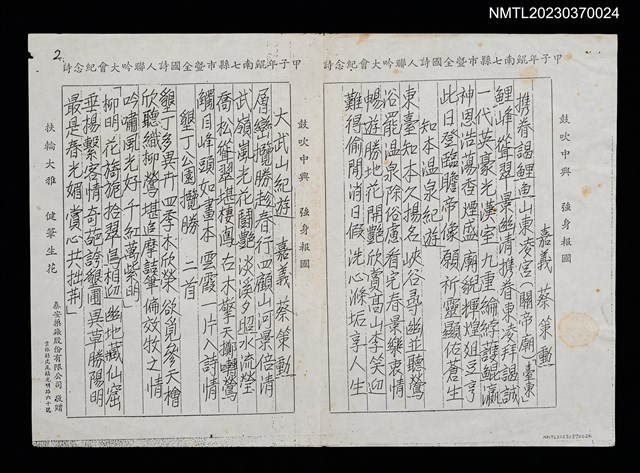 NMTL20230370024
甲子年鯤南七縣市暨全國詩人聯吟大會紀念詩
攜眷謁鯉魚山東凌宮（關帝廟）臺東
嘉義 蔡策勳
鯉峰聳翠景幽清攜眷東凌拜謁誠
一代英豪光漢室九重綸綍護鯤瀛
神恩浩蕩香煙盛廟貌輝煌俎豆亨
此日登臨瞻帝像願祈靈顯佑蒼生
知本溫泉紀遊
東臺知本久揚名峽谷尋幽並聽鶯
浴罷溫泉除俗慮看完春景樂衷情
暢遊勝地花開艷欣賞高山李笑迎
難得偷閒消日假洗心滌垢享人生
鼓吹中興 強身報國
2
甲子年鯤南七縣市暨全國詩人聯吟大會紀念詩
鼓吹中興 強身報國
大武山紀遊 嘉義 蔡策勳
層巒攬勝趁春行四顧山河景倍清
武嶺嵐光花鬪艷淡溪夕照水流瑩
喬松聳翠堪棲鳳古木擎天慚囀鶯
觸目峰頭如畫本雲霞一片入詩情
墾丁公園攬勝 二首
墾丁多異卉四季木欣榮欲覓參天檜
欣聽織柳鶯堪追摩詰筆倆效牧之情
吟嘯風光好千紅萬紫明
柳明花旖旎拾翠屐相迎幽地藏仙窟
垂楊繫客情奇葩誇墾圃異草勝陽明
最是春光媚賞心共拙荆
扶輪大雅 健筆生花
泰安藥廠股份有限公司 敬贈
NMTL20230370024